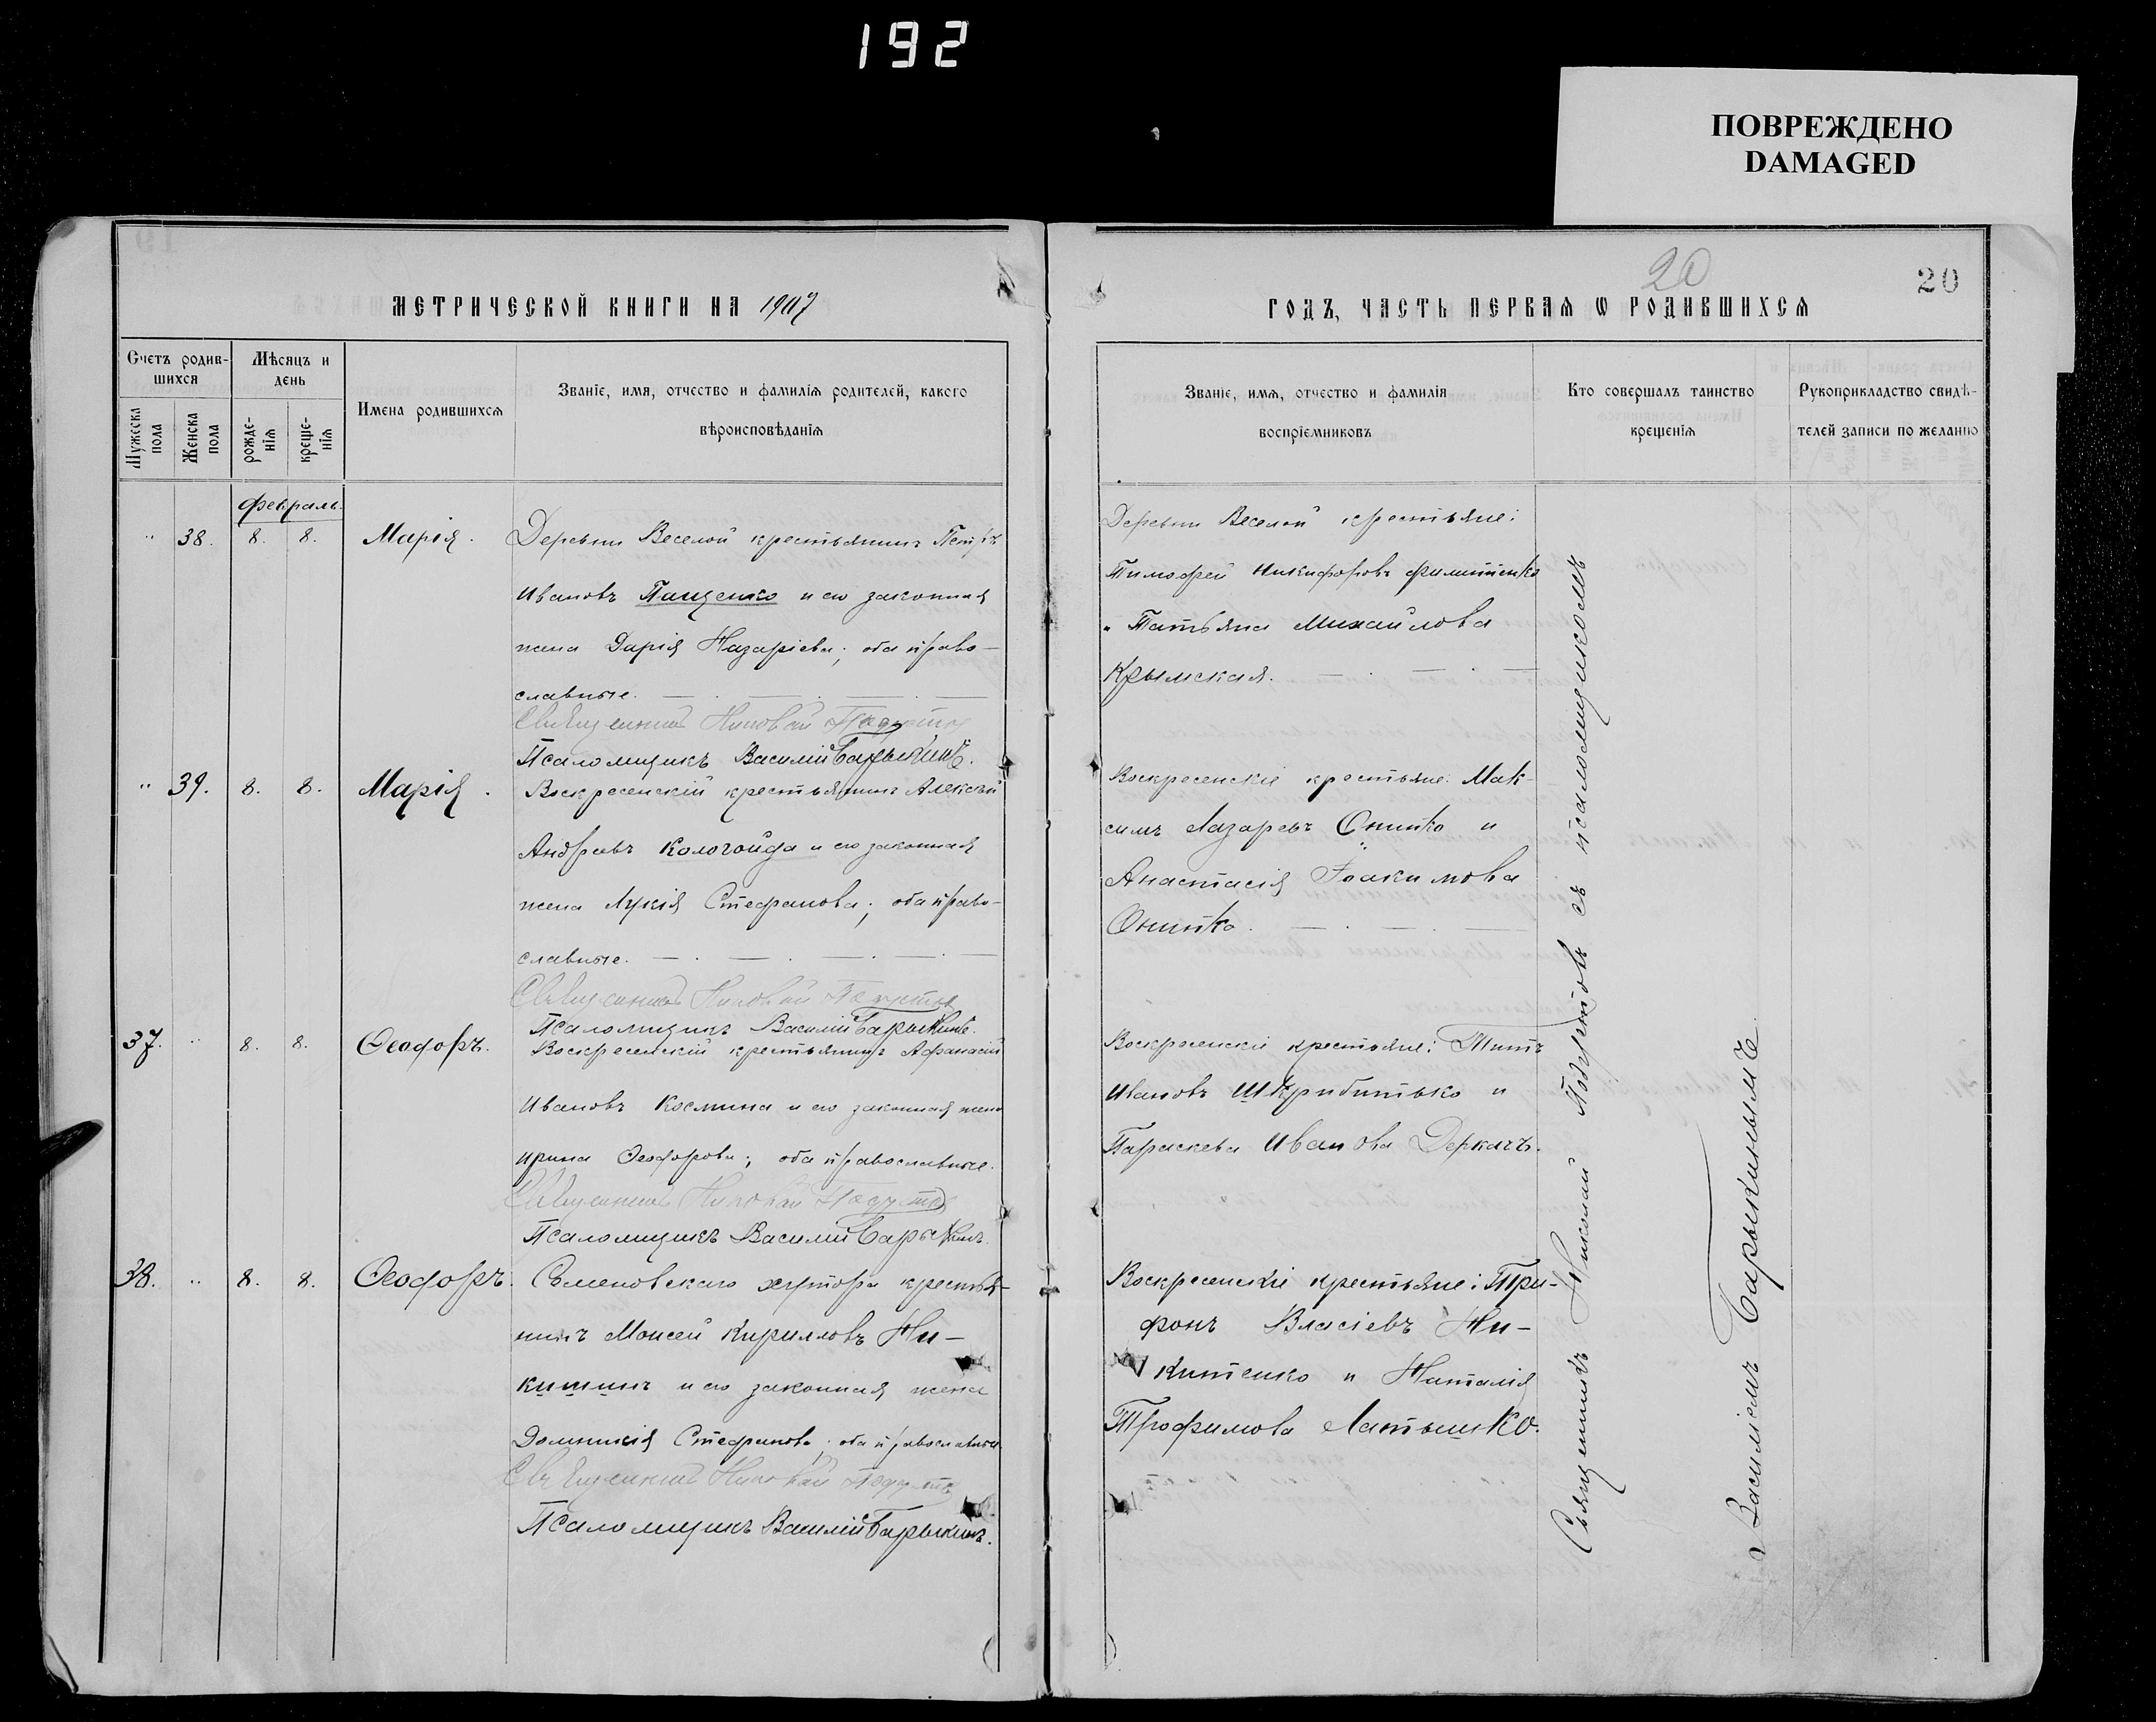 192
ПОВРЕЖДЕНО
DAMAGED
20
20
МЕТРИЧЕСКОЙ КНИГИ НА 1907
ГОДЪ, ЧАСТЬ ПЕРВАЯ Ѡ РОДИВШИХСЯ
Счетъ родив-
шихся
Мужеска пола
Женска пола
Мѣсяцъ и
день
рожде-
нія
креще-
нія
Имена родившихся
Званіе, имя, отчество и фамилія родителей, какого
вѣроисповѣданія
Званіе, имя, отчество и фамилія
воспріемниковъ
Кто совершалъ таинство
крещенія
Рукоприкладство свидѣ-
телей записи по желанію
февраль.
" 38. 8. 8. Марія.
Деревни Веселой крестьянинъ Петръ
Ивановъ Пащенко и его законная
жена Дарія Назаріева; оба право-
славные.
Священникъ Николай
Псаломщикъ Василій Барыкинъ.
Деревни Веселой крестьяне:
Тимофей Никифоровъ Филипенко
и Татьяна Михайлова
Крымская.
" 39. 8. 8. Марія.
Воскресенскій крестьянинъ Алексѣй
Андреевъ Кологойда и его законная
жена Лукія Стефанова; оба право-
славные.
Священникъ Николай
Псаломщикъ Василій Барыкинъ.
Воскресенскіе крестьяне: Мак-
симъ Лазаревъ Онипко и
Анастасія Іоакимова
Онипко.
37. " 8. 8. Ѳеодоръ.
Воскресенскій крестьянинъ Афанасій
Ивановъ Космина и его законная жена
Ирина Ѳеодорова; оба православные.
Священникъ Николай
Псаломщикъ Василій Барыкинъ.
Воскресенскіе крестьяне: Титъ
Ивановъ
Параскева Иванова Деркачъ.
38. " 8. 8. Ѳеодоръ.
Семеновскаго хутора крестья-
нинъ Моисей Кирилловъ Ни-
кишинъ и его законная жена
Домникія Стефанова; оба православные
Священникъ Николай
Псаломщикъ Василій Барыкинъ.
Воскресенскіе крестьяне: Три-
фонъ Власіевъ Ни-
китенко и Наталія
Трофимова Латышко.
Священникъ Николай съ псаломщикомъ
Василіемъ Барыкинымъ.